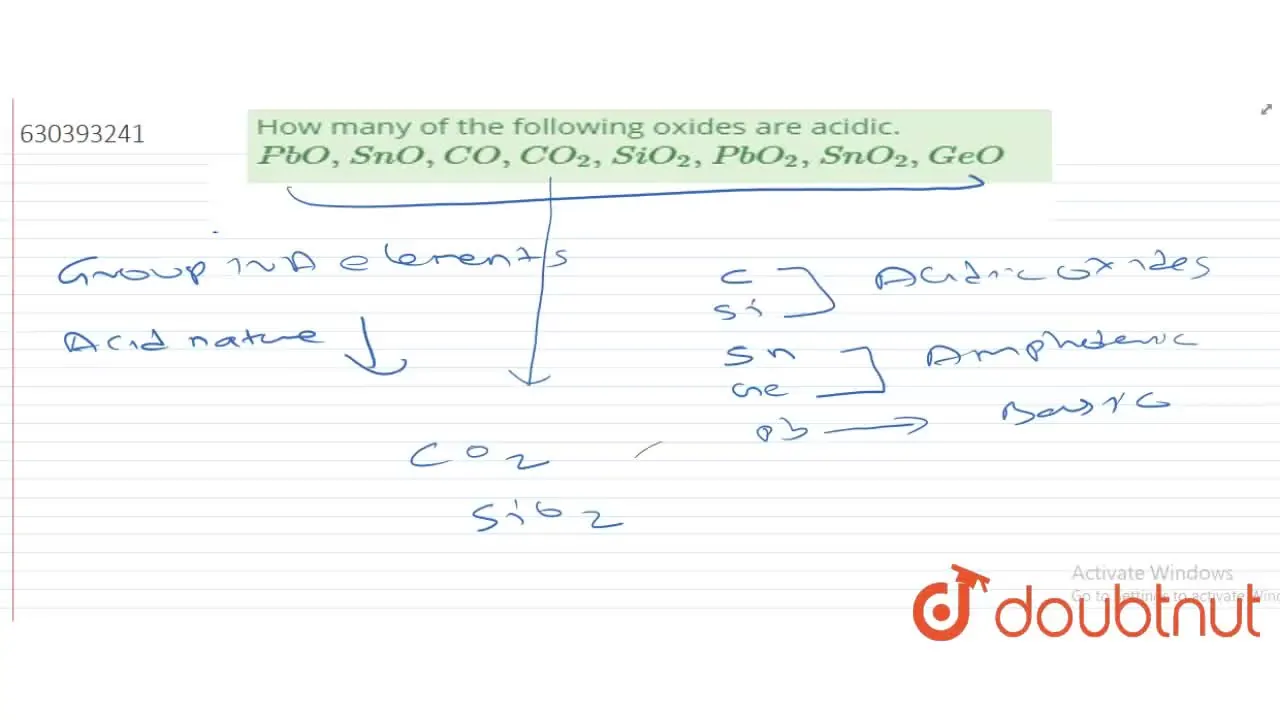 630393241
How many of the following oxides are acidic.
PbO, SnO, CO, CO₂, SiO₂, PbO₂, SnO₂, GeO
Group IVA elements
Acid nature
C
Si
Acidic oxides
Sn
Ge
Amphoteric
Pb → Basic
CO₂
SiO₂
Activate Windows
Go to Settings to activate Wind
doubtnut